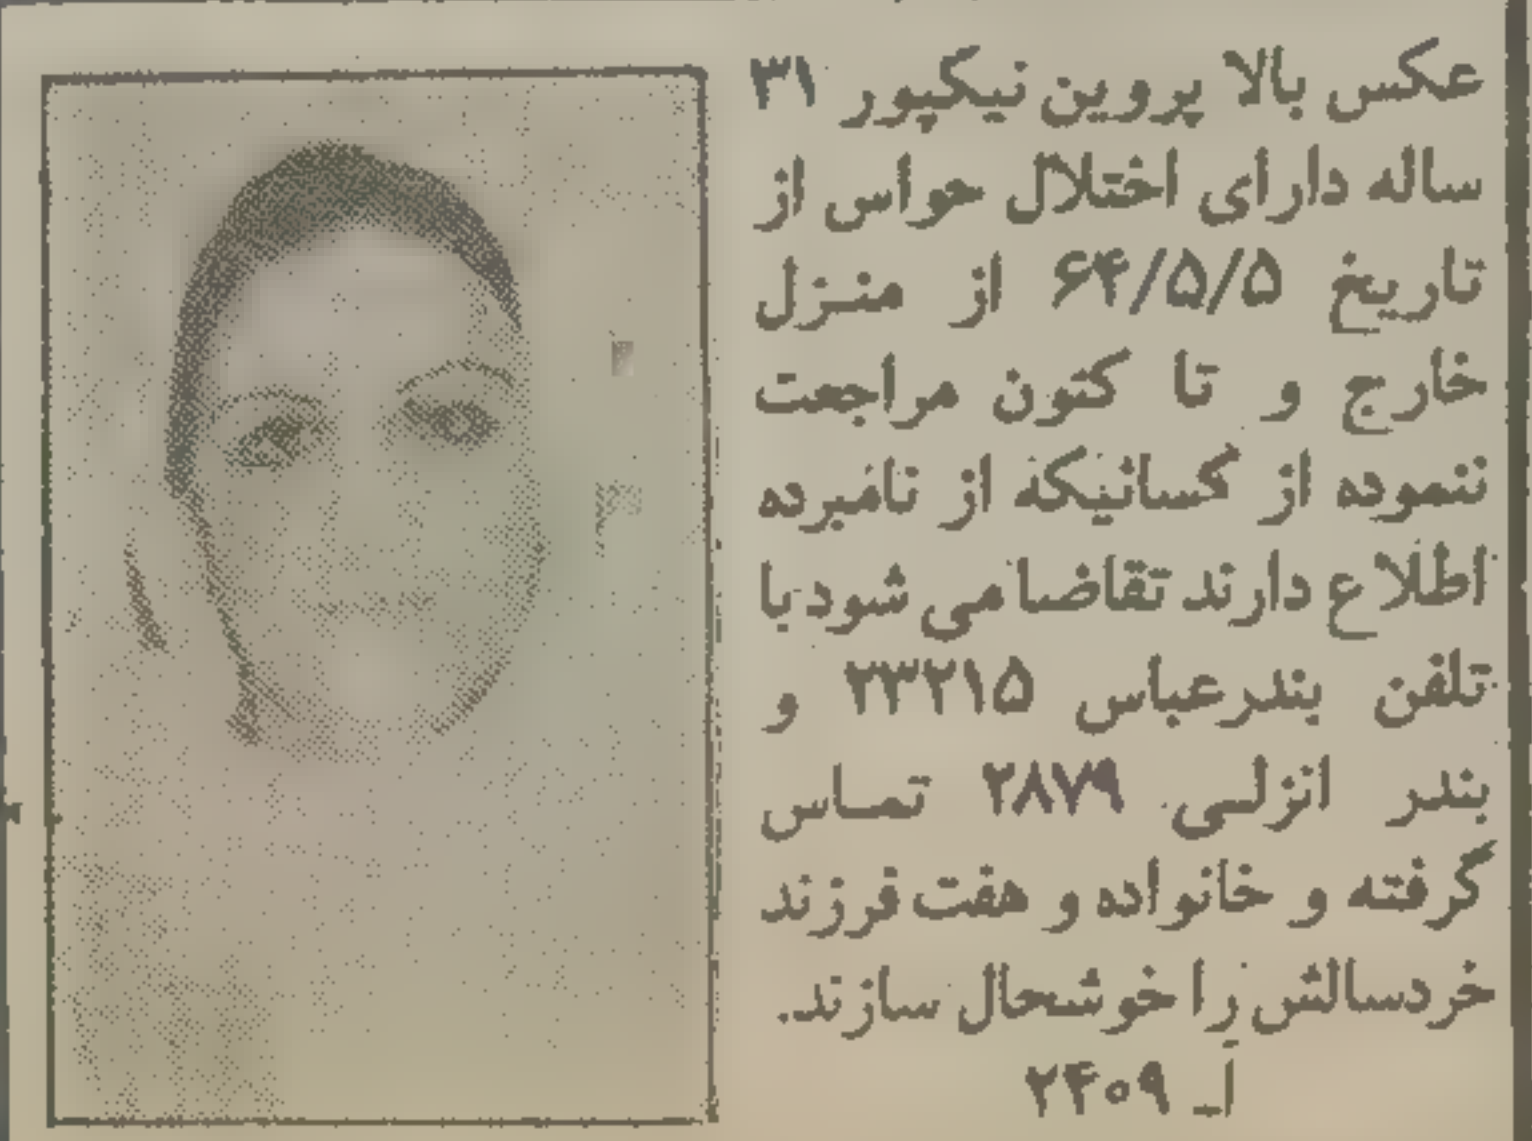 عکس بالا پروین نیکپور ۳۱
ساله دارای اختلال حواس از
تاریخ ۶۴/۵/۵ از منزل
خارج و تا کنون مراجعت
ننموده از کسانیکه از نامبرده
اطلاع دارند تقاضا می شود با
تلفن بندرعباس ۲۳۲۱۵ و
بندر انزلی ۲۸۷۹ تماس
گرفته و خانواده و هفت فرزند
خردسالش را خوشحال سازند.
ا‍ـ ۲۴۰۹